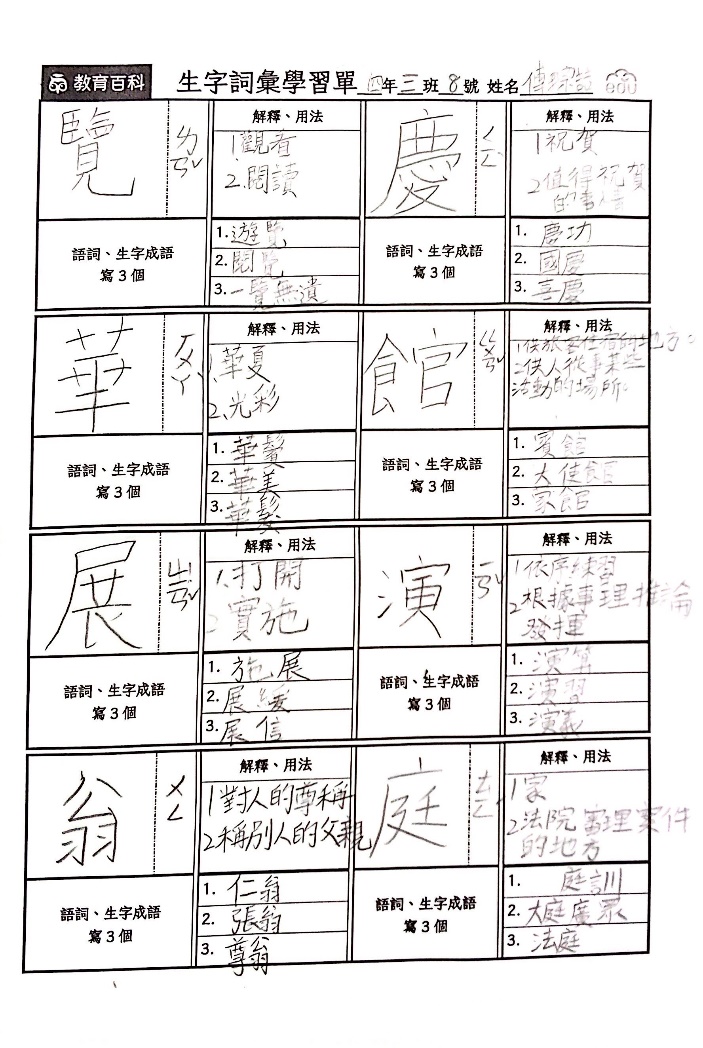 教育百科 生字詞彙學習單 四年三班8號 姓名傅
覽 ㄌㄢˇ
解釋、用法
1.觀看
2.閱讀
語詞、生字成語
寫3個
1.遊覽
2.閱覽
3.一覽無遺
慶 ㄑㄧㄥˋ
解釋、用法
1祝賀
2值得祝賀
的事情
語詞、生字成語
寫3個
1.慶功
2.國慶
3.喜慶
華 ㄏㄨㄚˊ
解釋、用法
1.華夏
2.光彩
語詞、生字成語
寫3個
1.華鬘
2.華美
3.華髮
館 ㄍㄨㄢˇ
解釋、用法
1供旅客住宿的地方。
2供人從事某些
活動的場所。
語詞、生字成語
寫3個
1.賓館
2.大使館
3.家館
展 ㄓㄢˇ
解釋、用法
1.打開
2實施
語詞、生字成語
寫3個
1.施展
2.展緩
3.展信
演 ㄧㄢˇ
解釋、用法
1依序練習
2根據事理推論
發揮
語詞、生字成語
寫3個
1.演算
2.演習
3.演義
翁 ㄨㄥ
解釋、用法
1對人的尊稱
2稱別人的父親
語詞、生字成語
寫3個
1.仁翁
2.張翁
3.尊翁
庭 ㄊㄧㄥˊ
解釋、用法
1家
2法院審理案件
的地方
語詞、生字成語
寫3個
1.庭訓
2.大庭廣眾
3.法庭